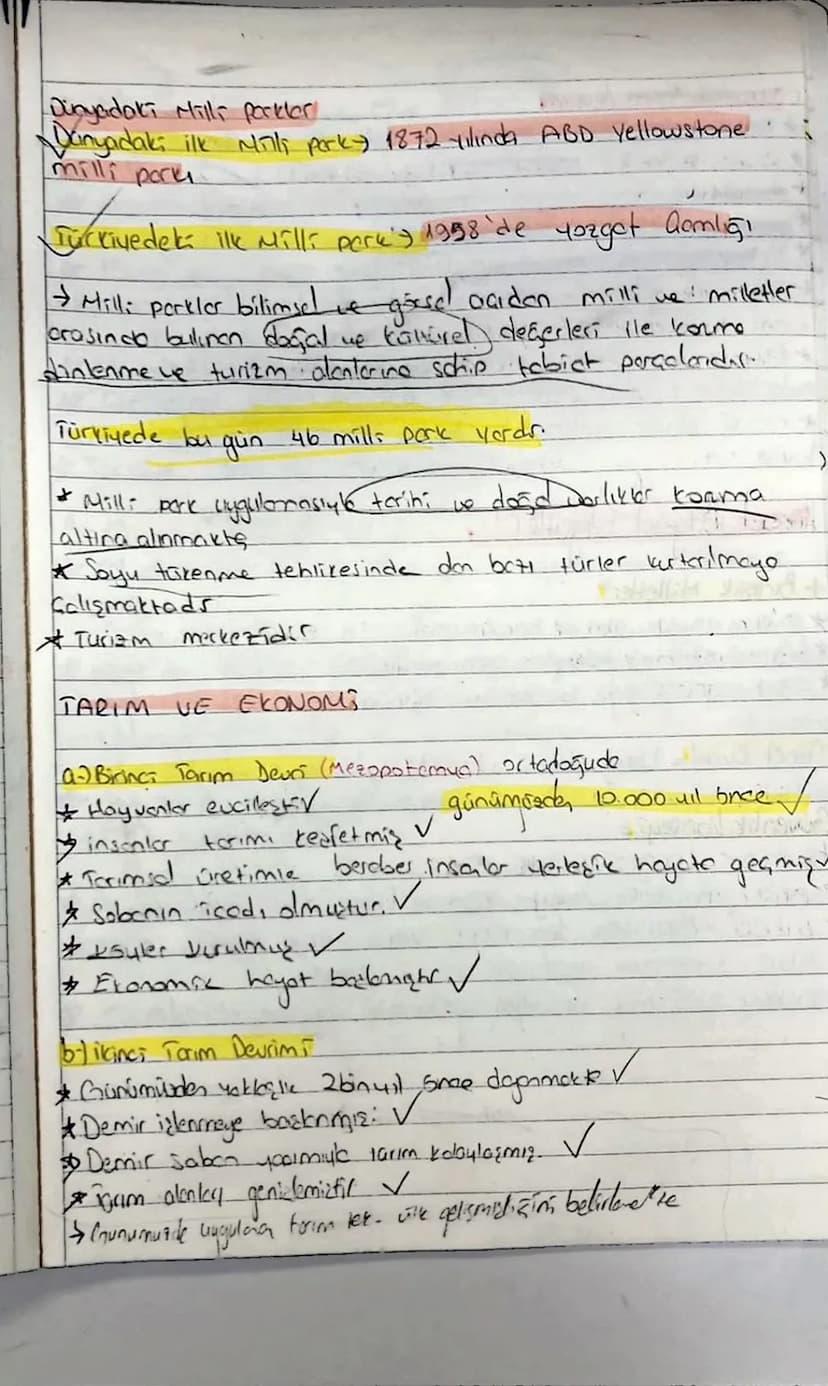 Dünyadaki Milli Parklar
Dünyadaki ilk Milli park → 1872 yılında ABD Yellowstone
milli parkı
Türkiyedeki ilk Milli park → 1958'de Yozgat Çamlığı
→ Milli parklar bilimsel ve görsel açıdan milli ve milletler
arasında bulunan doğal ve kültürel değerleri ile koruma
dinlenme ve turizm alanlarına sahip tabiat parçalarıdır.
Türkiyede bu gün 46 milli park vardır.
* Milli park uygulamasıyla tarihi ve doğal varlıklar koruma
altına alınmakta
* Soyu tükenme tehlikesinde dan bazı türler kurtarılmaya
Çalışmaktadır
* Turizm merkezidir
TARIM VE EKONOMİ
a-) Birinci Tarım Devri (Mezopotamya) ortadoğuda
* Hayvanlar evcilleştiv ✓ günümüzden 10.000 yıl önce ✓
→ insanlar tarımı keşfetmiş ✓
* Tarımsal üretimle beraber insanlar yerleşik hayata geçmiş ✓
* Sabanın icadı olmuştur. ✓
* Köyler kurulmuş ✓
* Ekonomik hayat başlamıştır ✓
b-) ikinci Tarım Devrimi
* Günümüzden yaklaşık 2bin yıl önce dayanmakta ✓
* Demir işlenmeye başlanmış: ✓
→ Demir saban yapımıyla tarım kolaylaşmış. ✓
* Tarım alanları genişlemiştir ✓
→ Günümüzde uygulanan tarım tek. ülk gelişmişliğini belirlemekte